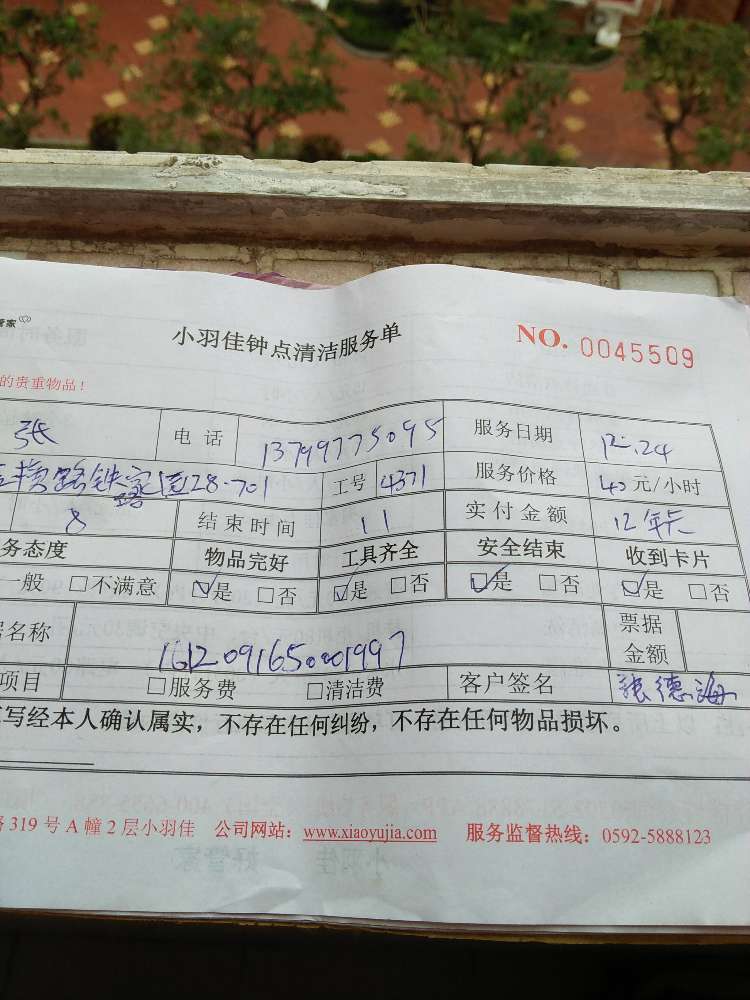 管家
小羽佳钟点清洁服务单 NO. 0045509
的贵重物品！
张 电话 13799775095 服务日期 12.24
28-701 工号 4371 服务价格 40元/小时
8 结束时间 11 实付金额 12年卡
务态度 物品完好 工具齐全 安全结束 收到卡片
一般 □不满意 ☑是 □否 ☑是 □否 ☑是 □否 ☑是 □否
名称 1612091650001997 票据金额
项目 □服务费 □清洁费 客户签名 张德海
写经本人确认属实，不存在任何纠纷，不存在任何物品损坏。
319号A幢2层小羽佳 公司网站：www.xiaoyujia.com 服务监督热线：0592-5888123